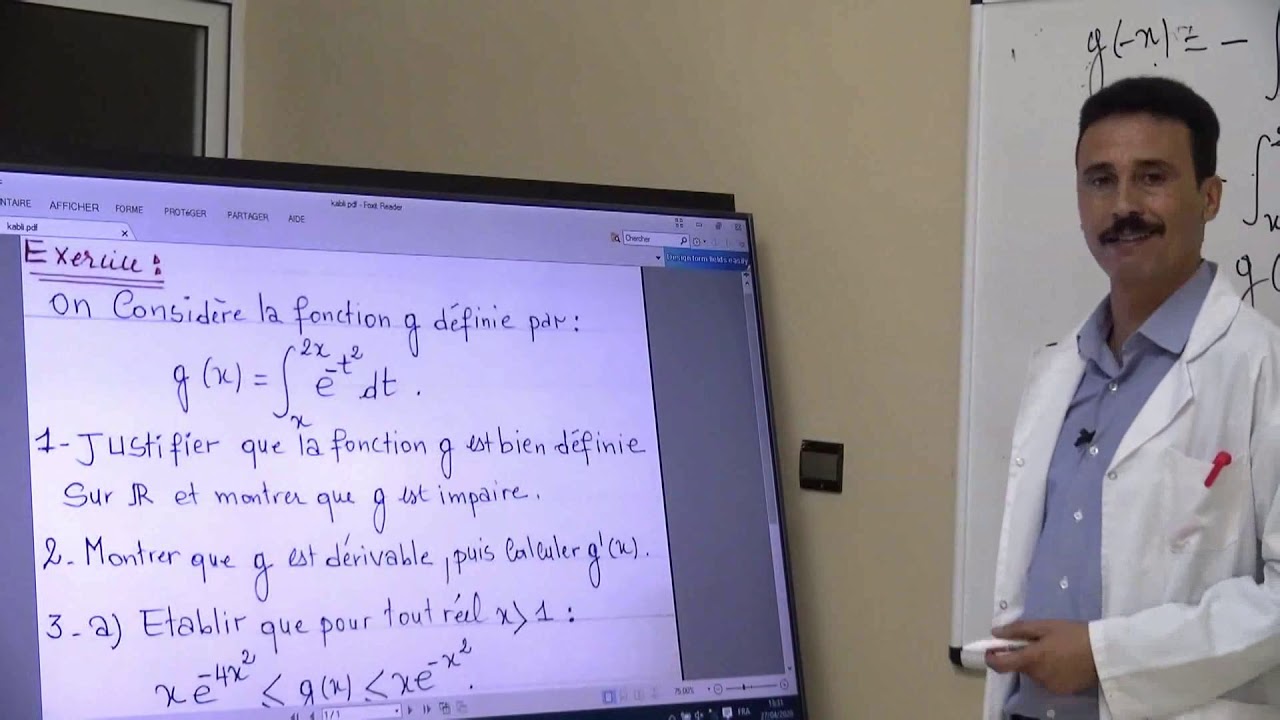 NTAIRE AFFICHER FORME PROTÉGER PARTAGER AIDE
kabli.pdf - Foxit Reader
kabli.pdf x
Chercher
Design form fields easily
Exercice :
On Considère la fonction g définie par :
g(x) = ∫_x^{2x} e^{-t^2} dt .
1- Justifier que la fonction g est bien définie
Sur ℝ et montrer que g est impaire.
2. Montrer que g est dérivable, puis Calculer g'(x).
3- a) Etablir que pour tout réel x > 1 :
x e^{-4x^2} ≤ g(x) ≤ x e^{-x^2}.
1/1
75.00%
FRA
13:31
27/04/2020
g(-x) = - ∫
∫_x
g(